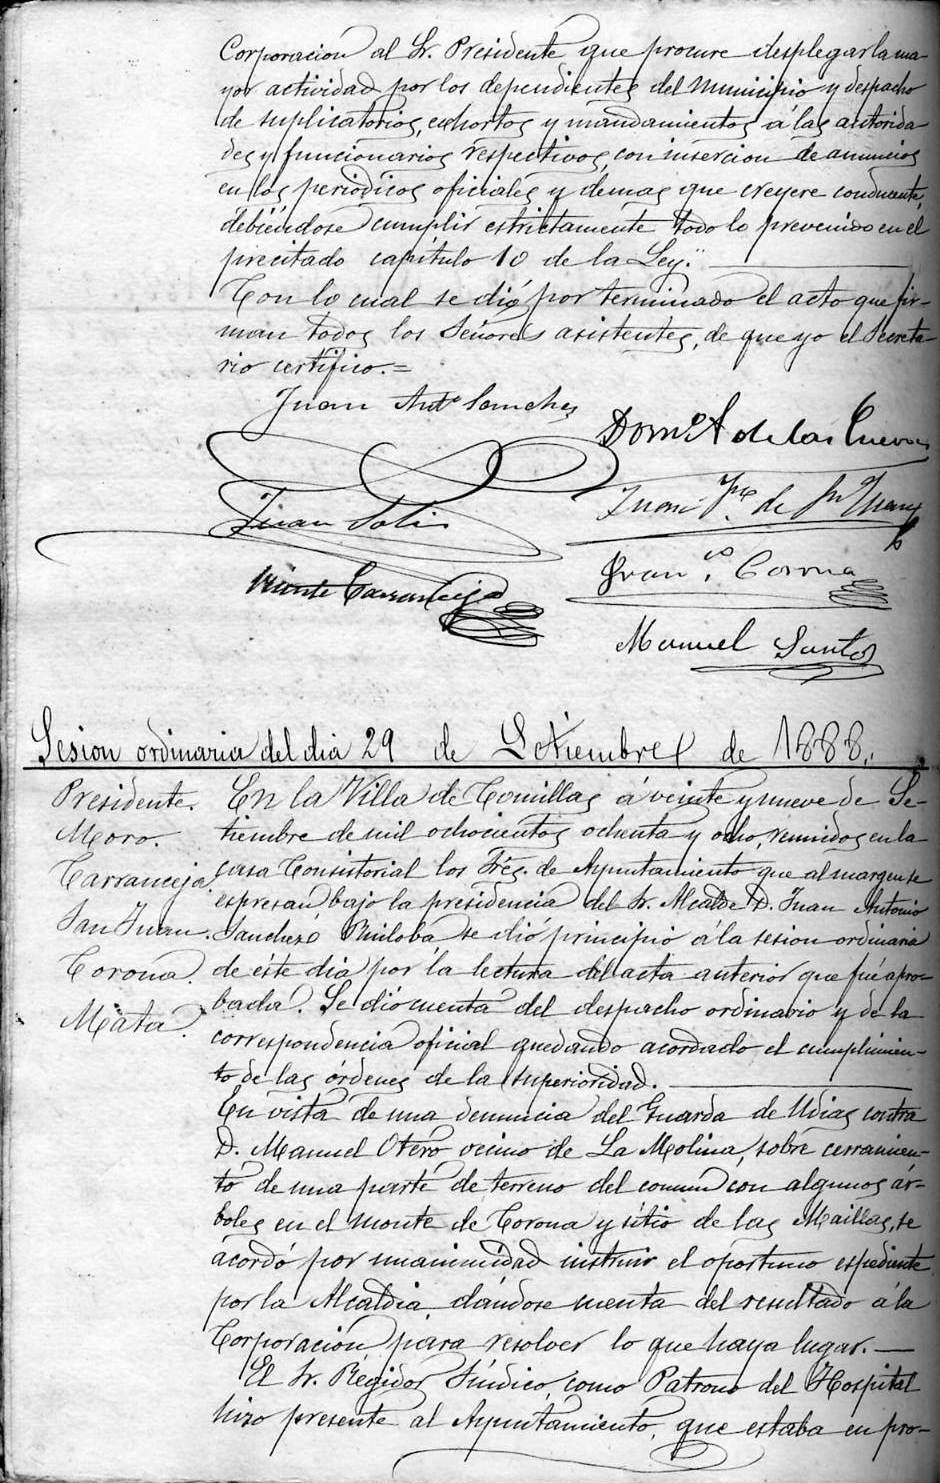 Corporacion al Sr. Presidente que procure desplegar la ma-
yor actividad por los dependientes del Municipio y despacho
de suplicatorios, exhortos y mandamientos á las autorida-
des y funcionarios respectivos, con insercion de anuncios
en los periódicos oficiales y demas que creyere conducente,
debiéndose cumplir estrictamente todo lo prevenido en el
precitado capítulo 10 de la Ley."
Con lo cual se dió por terminado el acto que fir-
man todos los Señores asistentes, de que yo el Secreta-
rio certifico.=
Juan Antº Sanchez
Domº A de las Cuevas
Juan Solis
Juan de Sn Juan
Vicente Carranceja
Franco. Corona
Manuel Santos
Sesion ordinaria del dia 29 de Setiembre de 1888.
Presidente.
Moro.
Carranceja.
San Juan.
Corona.
Mata.
En la Villa de Comillas á veinte y nueve de Se-
tiembre de mil ochocientos ochenta y ocho, reunidos en la
casa Consistorial los Sres. de Ayuntamiento que al margen se
espresan bajo la presidencia del Sr. Alcalde D. Juan Antonio
Sanchez é Ruiloba se dió principio á la sesion ordinaria
de éste dia por la lectura del acta anterior que fué apro-
bada. Se dió cuenta del despacho ordinario y de la
correspondencia oficial quedando acordado el cumplimien-
to de las órdenes de la superioridad.
En vista de una denuncia del Guarda de Udias contra
D. Manuel Otero vecino de La Molina, sobre cerramien-
to de una parte de terreno del comun con algunos ár-
boles en el monte de Corona y sitio de las Maillas, se
acordó por unanimidad instruir el oportuno espediente
por la Alcaldia dándose cuenta del resultado á la
Corporación para resolver lo que haya lugar.
El Sr. Regidor Síndico, como Patrono del Hospital
hizo presente al Ayuntamiento, que estaba en pro-